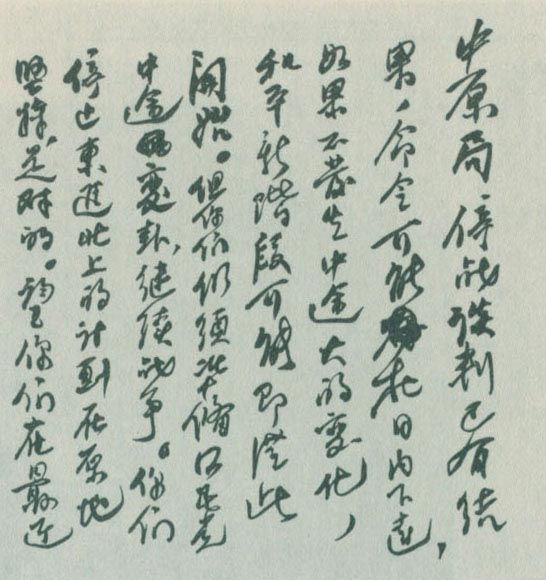 中原局 停战谈判已有结
果，命令可能在日内下达，
如果不发生中途大的变化，
和平新阶段可能即从此
開始。但你们仍须准备国民党
中途变卦，继续战争。你们
停止東進北上的计划在原地
坚持，是对的。望你们在最近